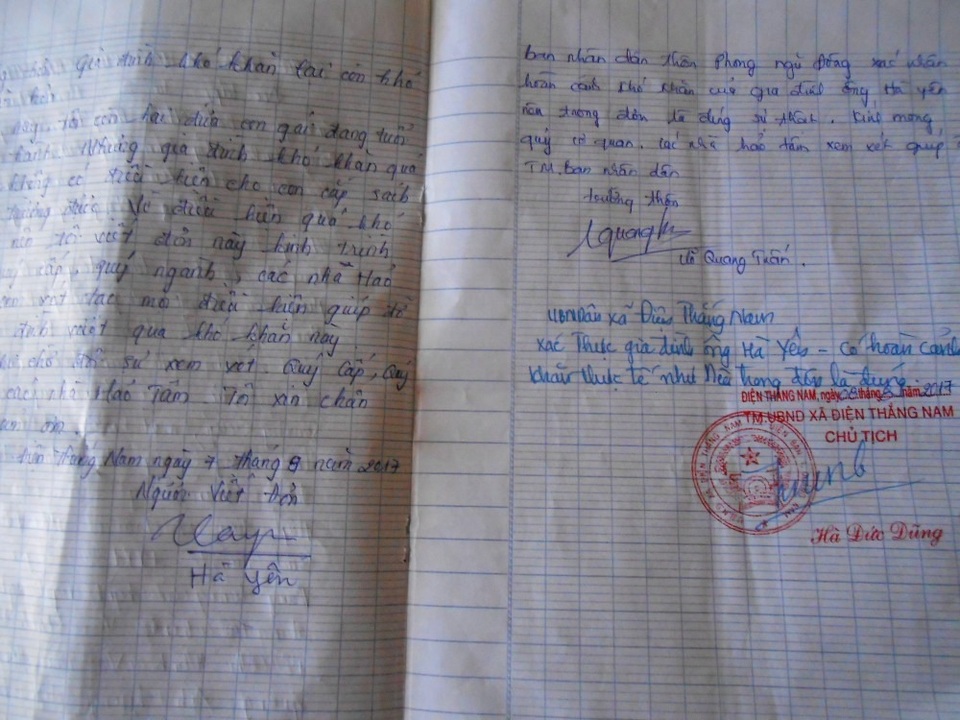 gia đình khó khăn lại còn khó
này. tôi còn hai đứa con gái đang tuổi
Nhưng gia đình khó khăn quá
không có điều kiện cho con cắp sách
trường được. Vì điều kiện quá khó
nên tôi viết đơn này kính trình
cấp, quý ngành, các nhà Hảo
tạo mọi điều kiện giúp đỡ
đình vượt qua khó khăn này
chờ sự xem xét. Quý Cấp, Quý
các nhà Hảo Tâm Tôi xin chân
ơn
Thắng Nam ngày 7 tháng 9 năm 2017
Người Viết Đơn
Hà Yên
ban nhân dân thôn Phong ngũ Đông xác nhân
hoàn cảnh khó khăn của gia đình ông Hà yên
nêu trong đơn là đúng sự thật. Kính mong
quý cơ quan. các nhà hảo tâm xem xét giúp
TM. Ban nhân dân
trưởng thôn
Quang Tuấn.
xã Điện Thắng Nam
xác Thực gia đình ông Hà Yên - Có hoàn cảnh
khăn thực tế như Nêu trong đơn là đúng
ĐIỆN THẮNG NAM, ngày 08 tháng 9 năm 2017
TM.UBND XÃ ĐIỆN THẮNG NAM
CHỦ TỊCH
Hà Đức Dũng